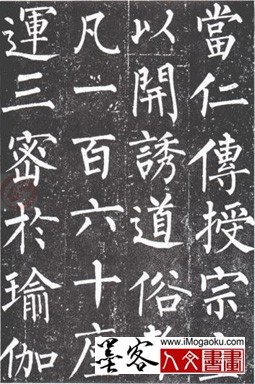 當仁傳授宗
以開誘道俗者
凡一百六十座
運三密於瑜伽
墨客
www.iMogaoku.com
人文書畫